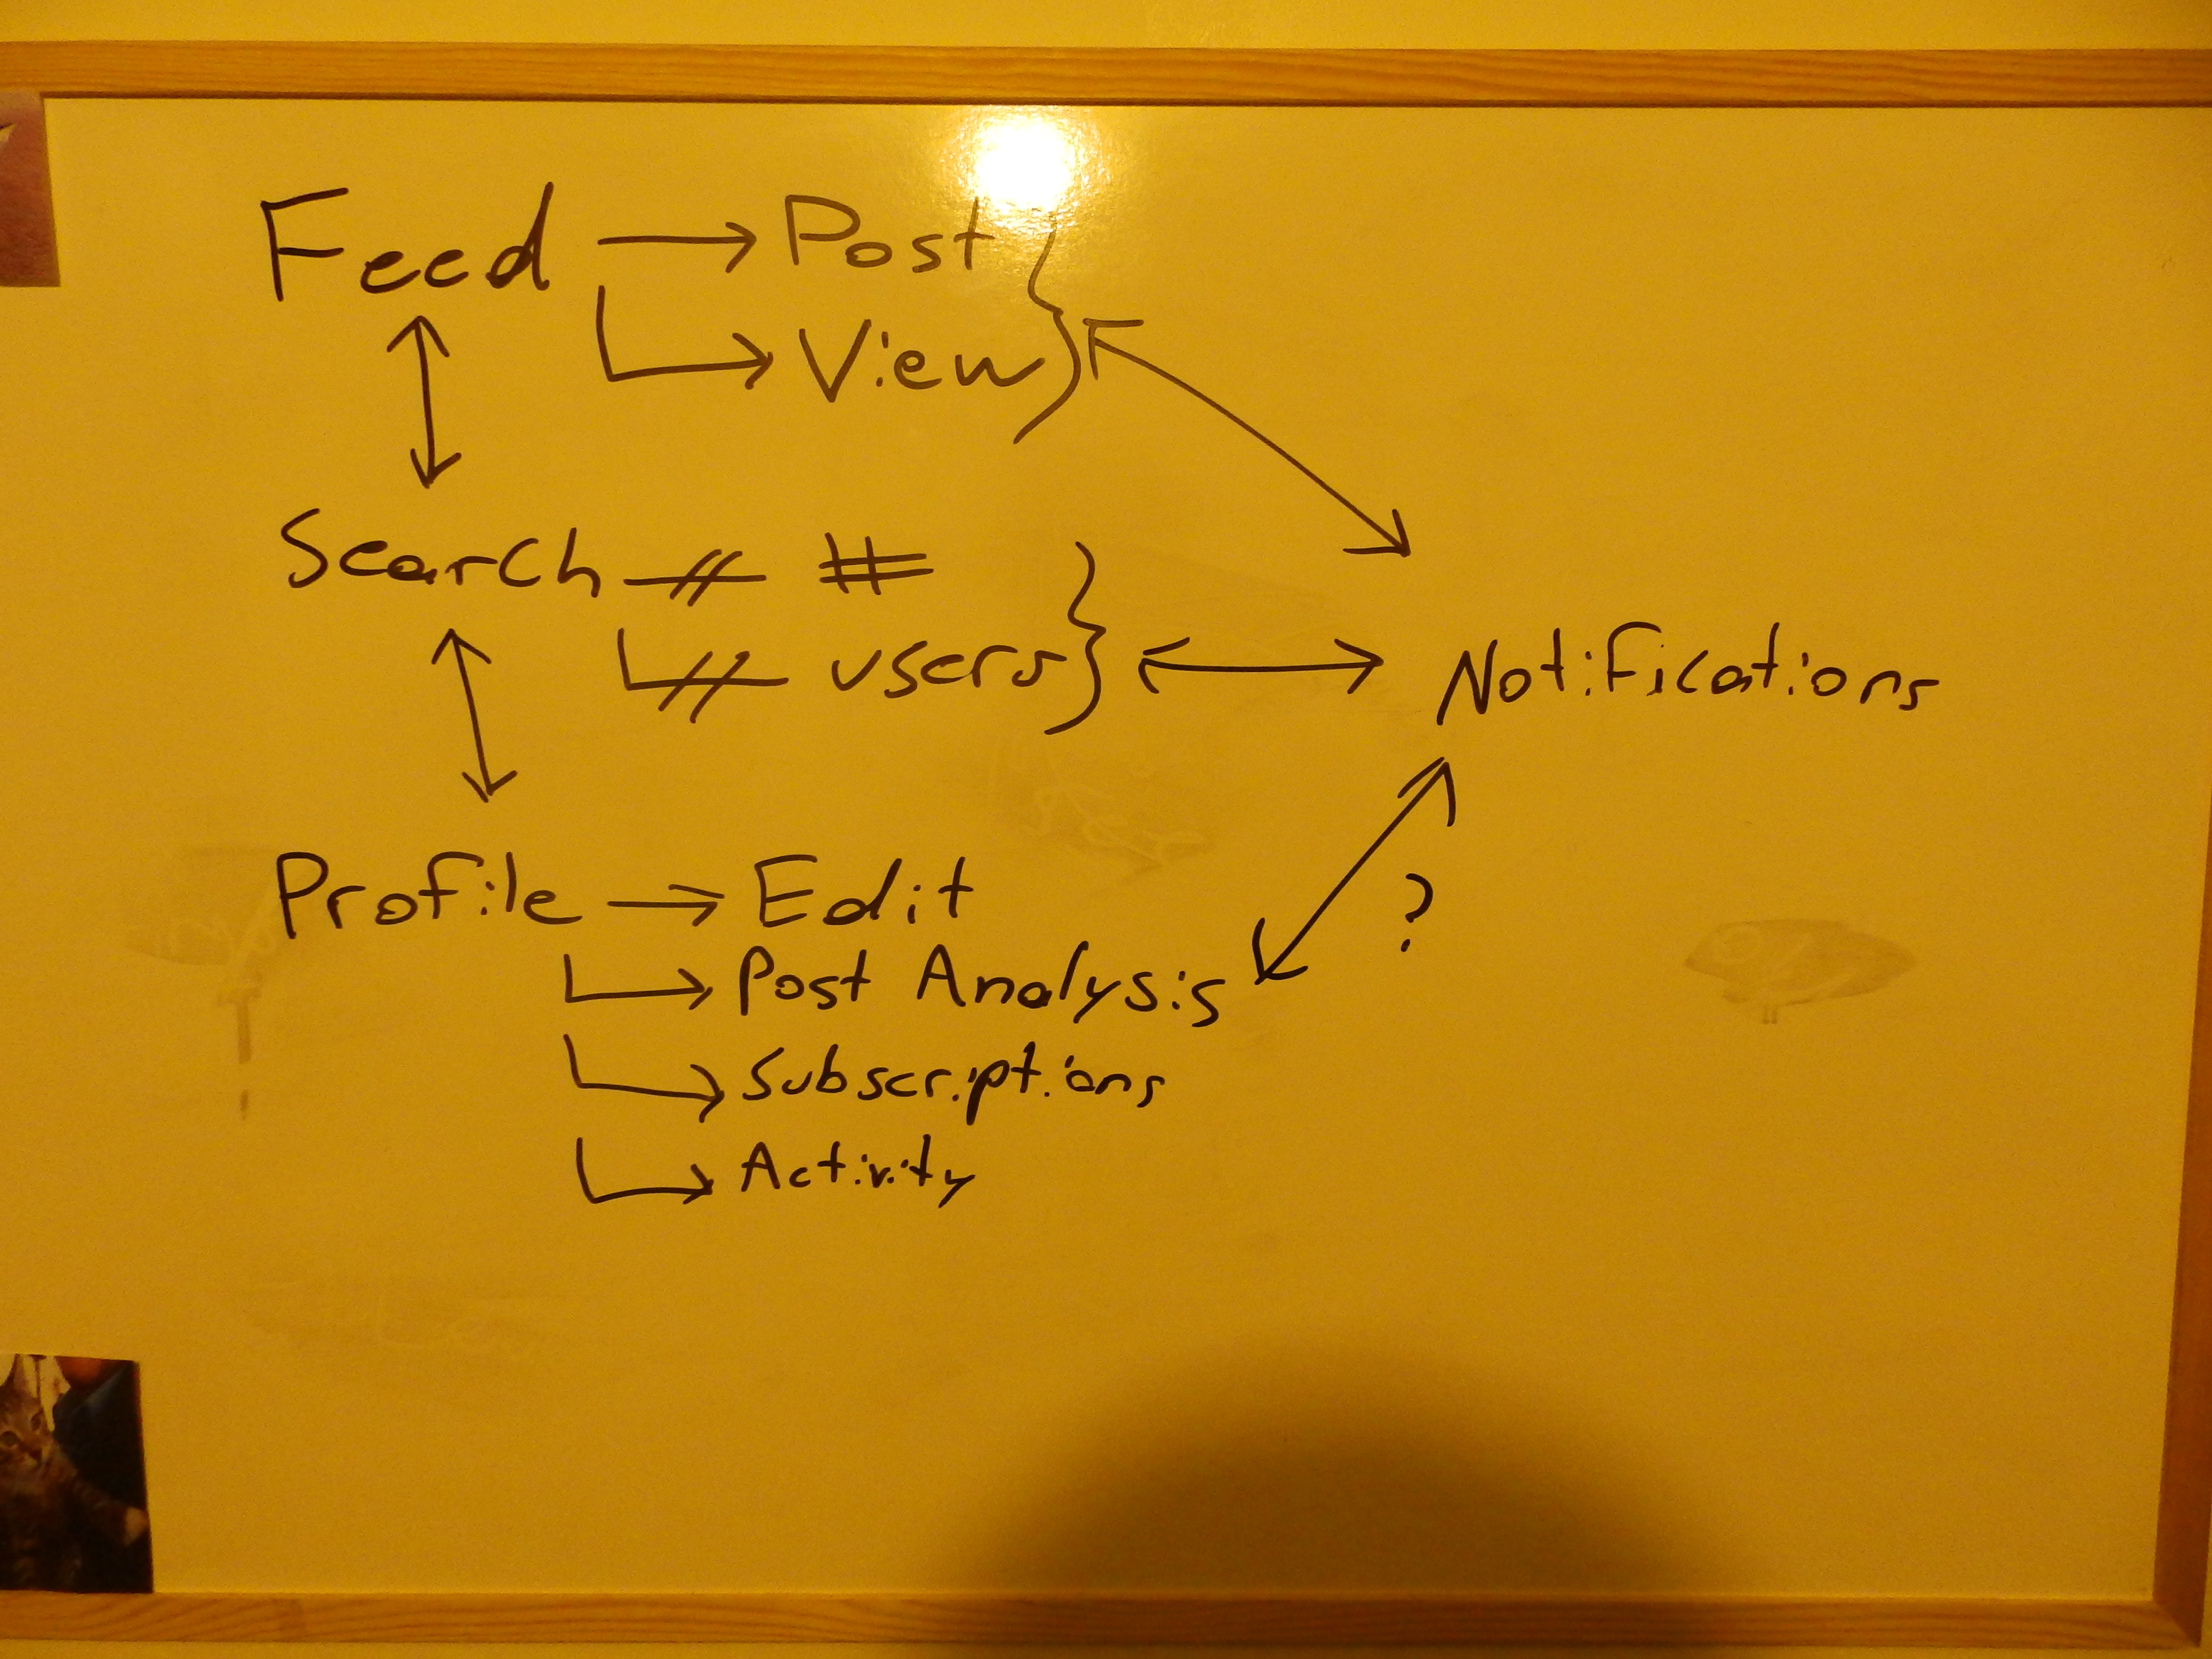 Feed → Post
View
Search #
users
Notifications
Profile → Edit
?
Post Analysis
Subscriptions
Activity